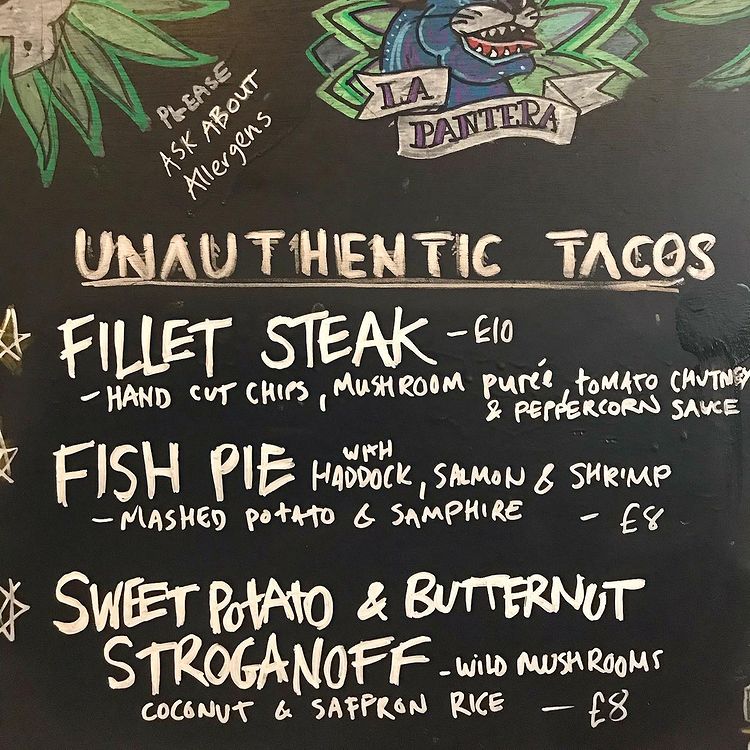 PLEASE
ASK ABOUT
Allergens
LA
PANTERA
UNAUTHENTIC TACOS
FILLET STEAK - £10
- HAND CUT CHIPS, MUSHROOM purée, tOMATO CHUTNEY
& PEPPERCORN SAUCE
FISH PIE WITH HADDOCK, SALMON & SHRIMP
- MASHED POtAtO & SAMPHIRE - £8
SWEET POtAtO & BUTTERNUT
STROGANOFF - WILD MUSHROOMS
COCONUT & SAFFRON RICE - £8